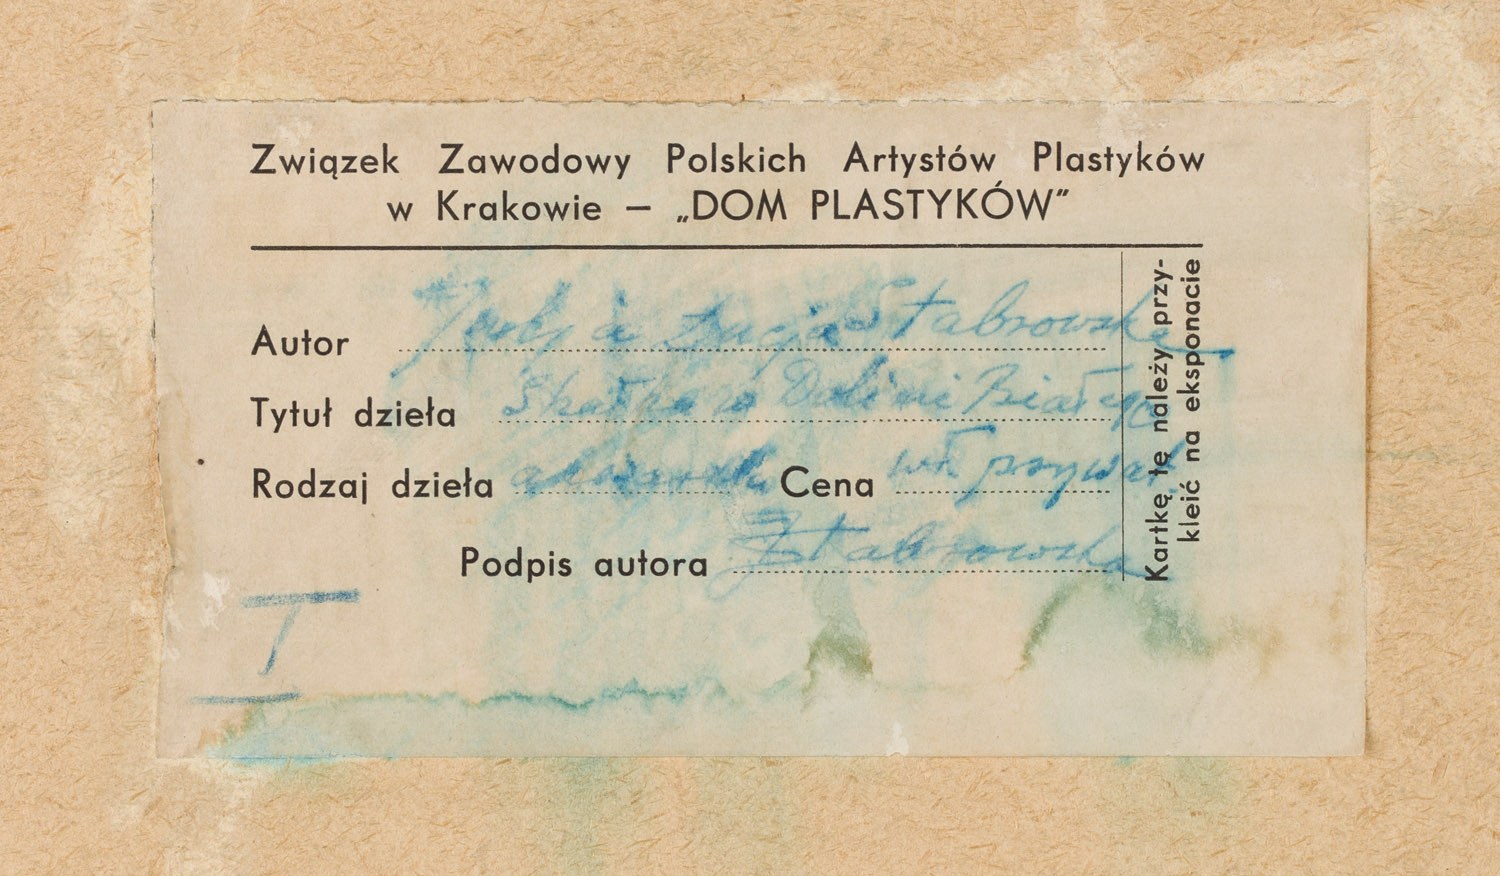 Związek Zawodowy Polskich Artystów Plastyków
w Krakowie – „DOM PLASTYKÓW”
Autor Łucja Stabrowska
Tytuł dzieła Skałka w Dolinie Białego
Rodzaj dzieła akwarela Cena wł. prywat.
Podpis autora Stabrowska
I
Kartkę tę należy przy-
kleić na eksponacie